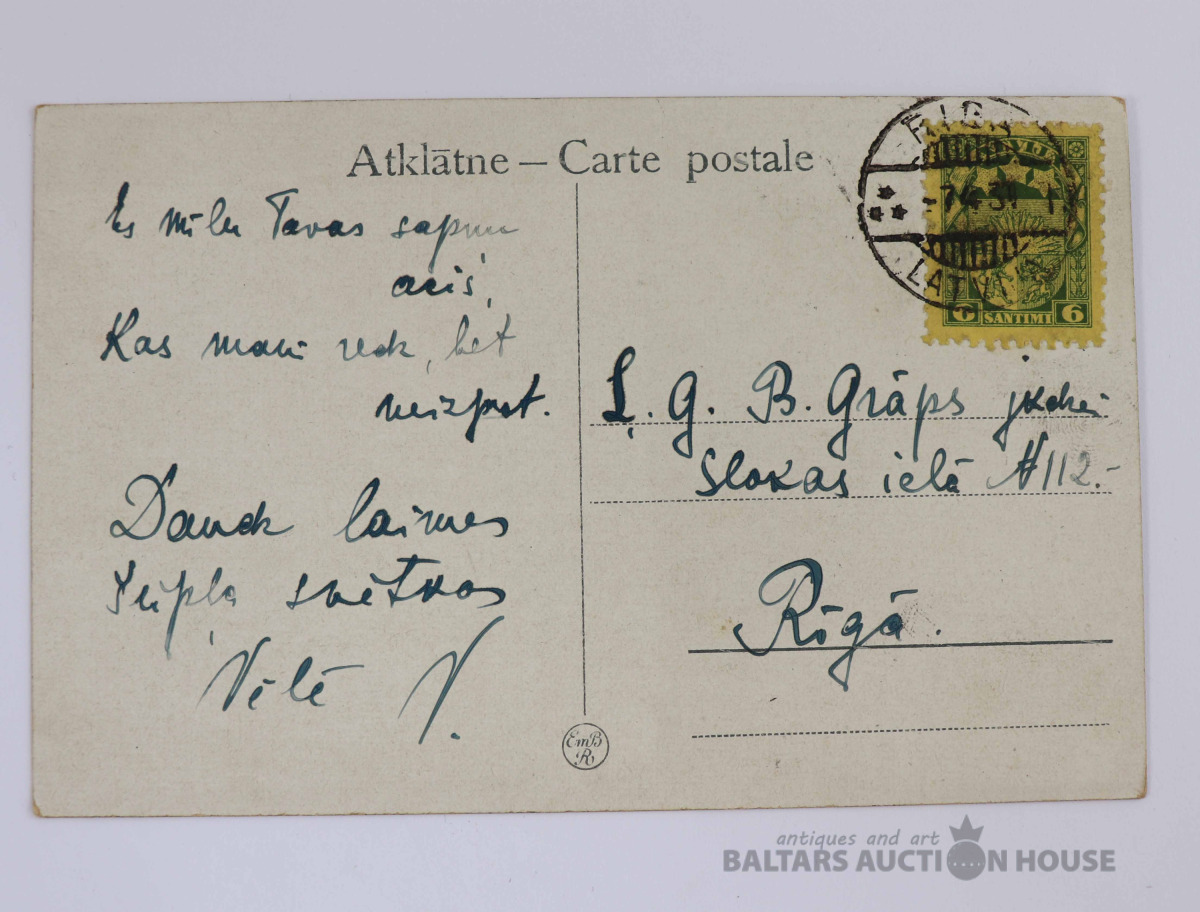 Atklātne — Carte postale
Es mīlu Tavas sapņu
acis,
Kas mani redz, bet
neizprot.
Daudz laimes
svētkos
Vēlē V.
RIGA
LATVIJA
LATVIJA
6 SANTIMI 6
Ļ. G. B. Grāps jkdzei
Slokas ielā N112.-
Rīgā.
EmB
R
antiques and art
BALTARS AUCTION HOUSE